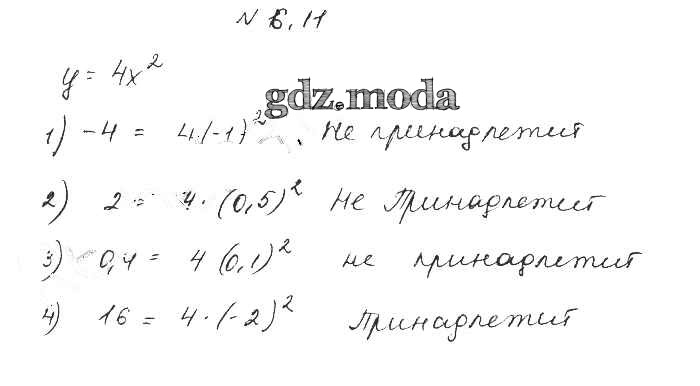 N 6.11
y = 4x²
gdz.moda
1) -4 = 4·(-1)². Не принадлежит
2) 2 = 4·(0,5)² Не Принадлежит
3) 0,4 = 4(0,1)² не принадлежит
4) 16 = 4·(-2)² Принадлежит